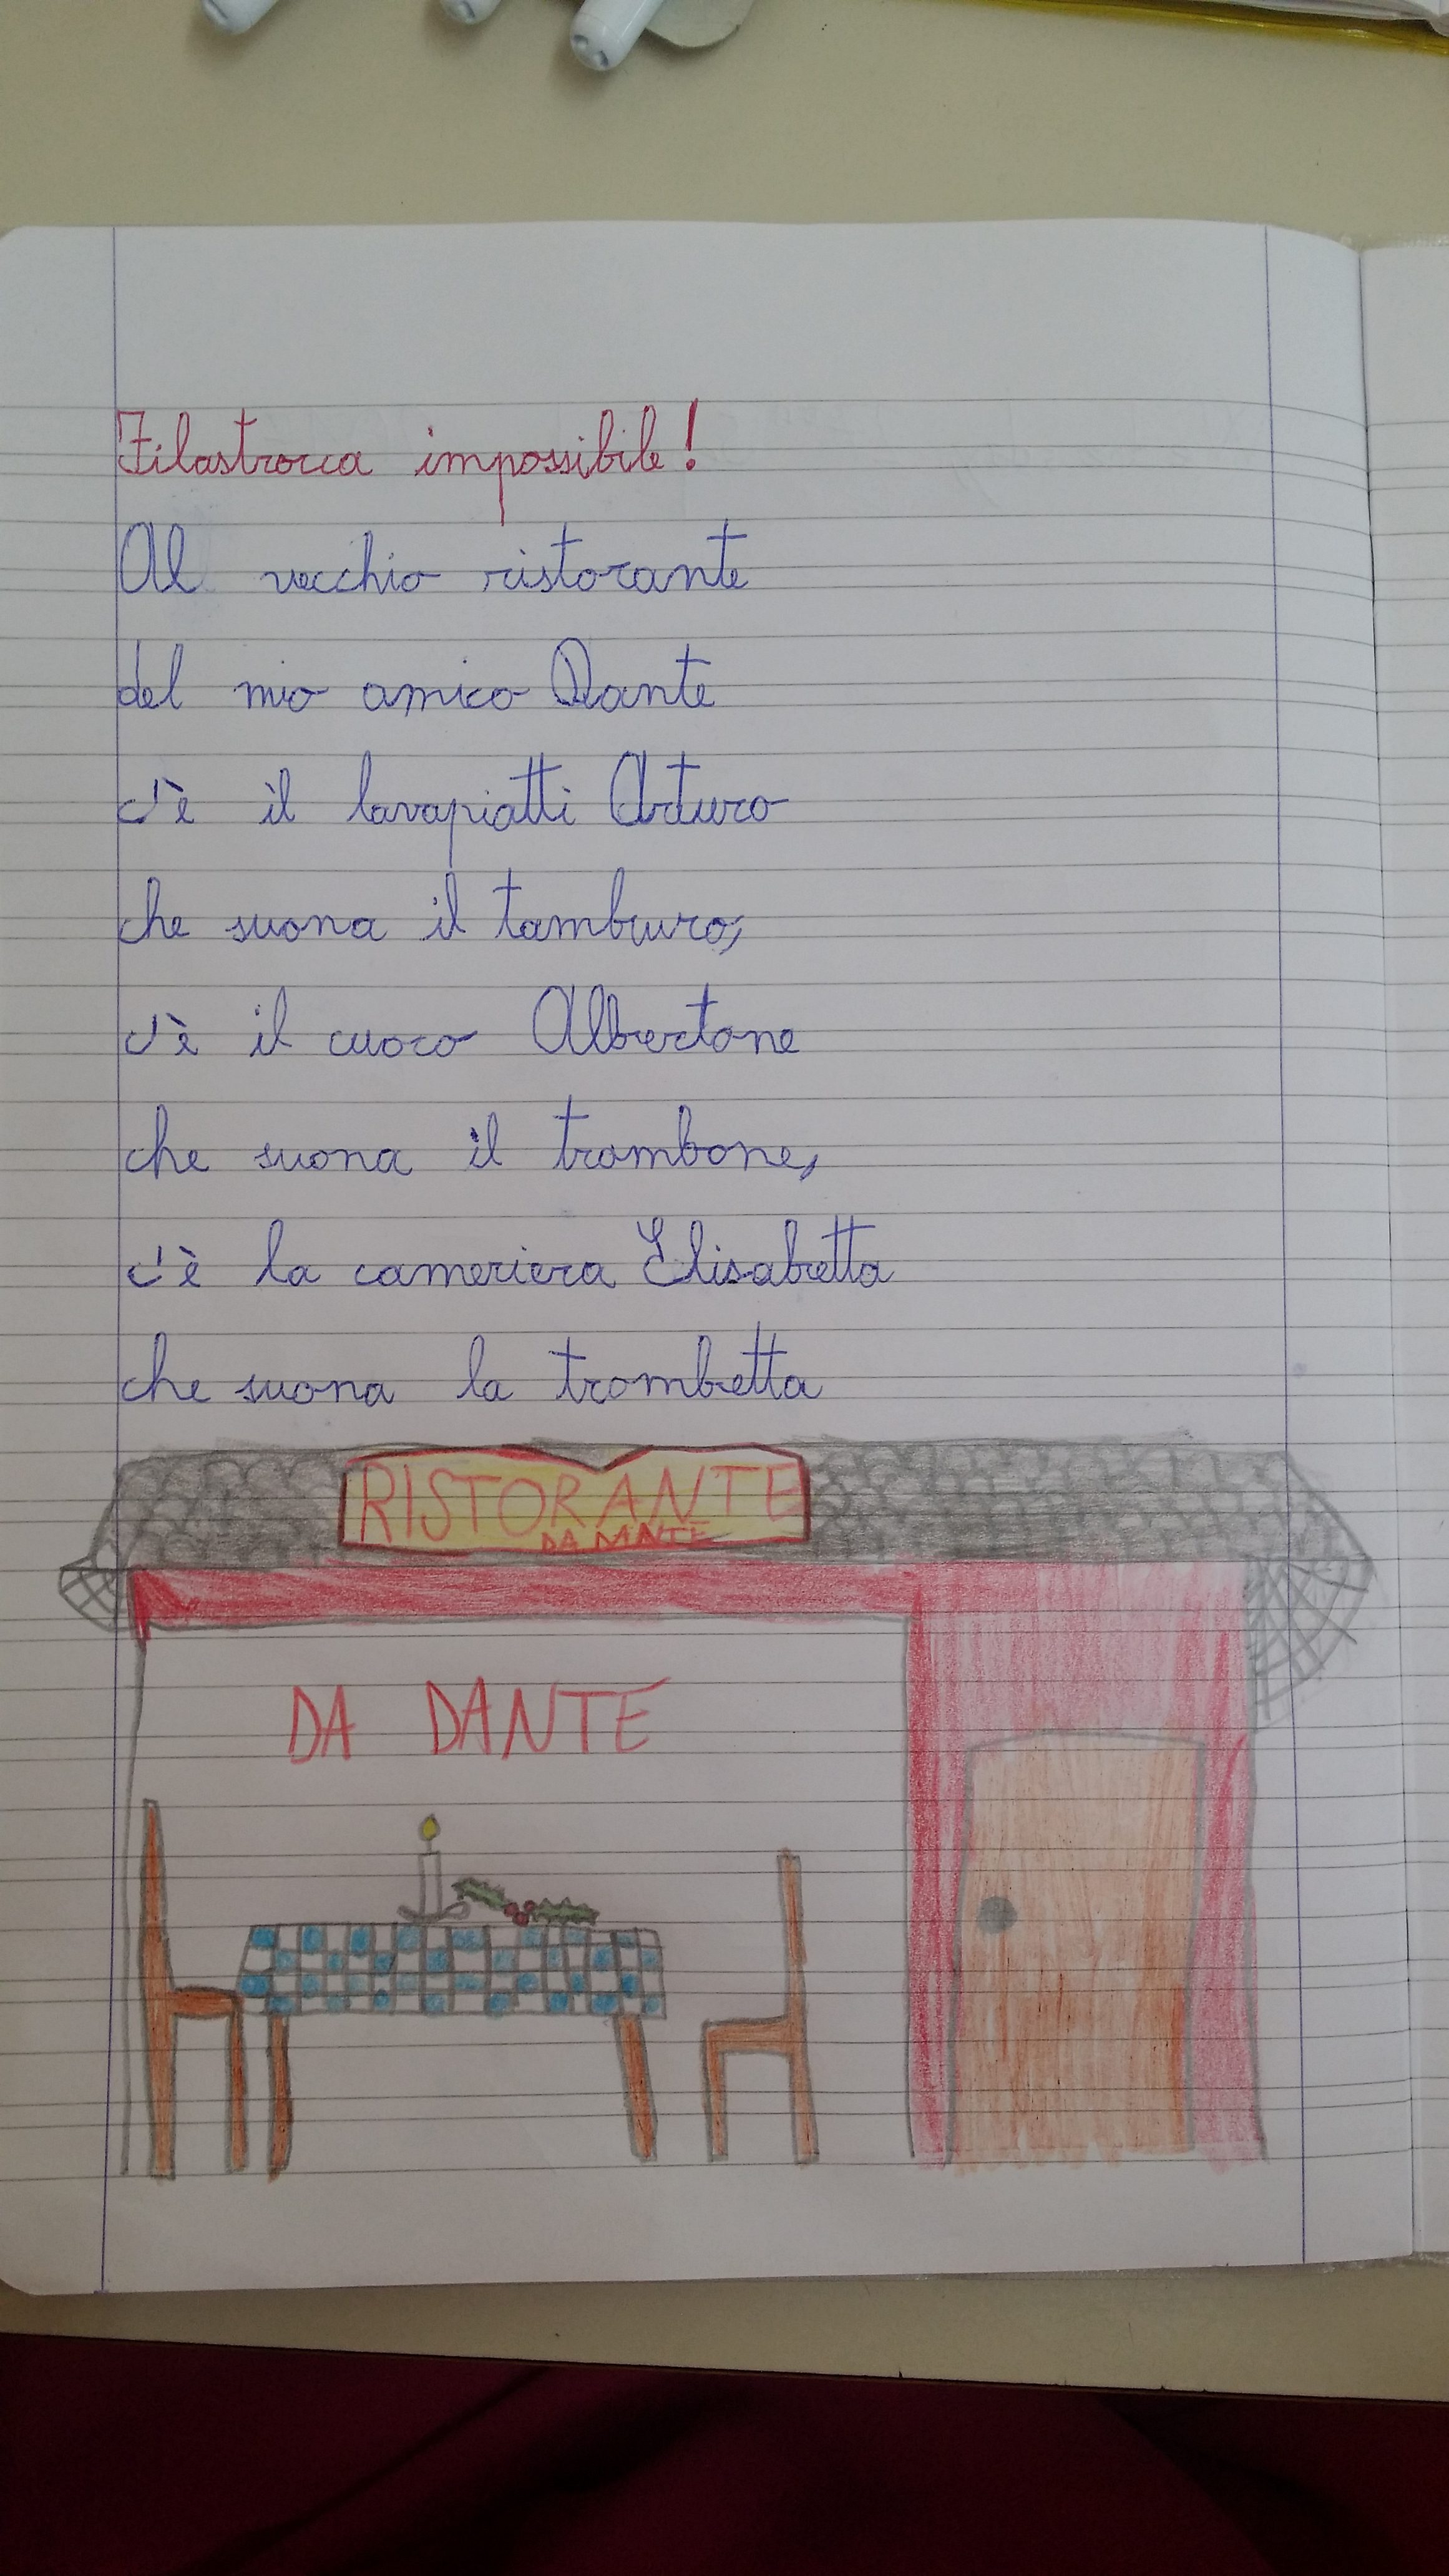 Filastrocca impossibile!
Al vecchio ristorante
del mio amico Dante
c'è il lavapiatti Arturo
che suona il tamburo,
c'è il cuoco Albertone
che suona il trombone,
c'è la cameriera Elisabetta
che suona la trombetta
RISTORANTE
DA DANTE
DA DANTE